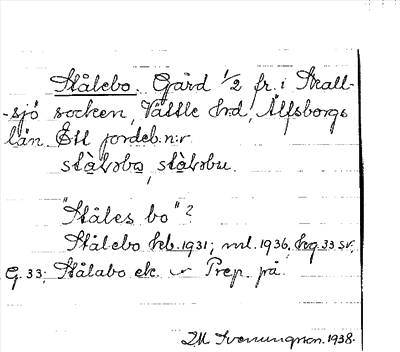 Stålebo. Gård 1/2 fr. i Skall-
-sjö socken, Vättle hrd, Älfsborgs
län. Ett jordeb.n:r
stålsbo, stålsbu.
"Ståles bo"?
Stålebo hfb. 1931; ml. 1936. hg. 33 sv.
G. 33; Stålabo ek. Prep. på.
Svenungsson. 1938.